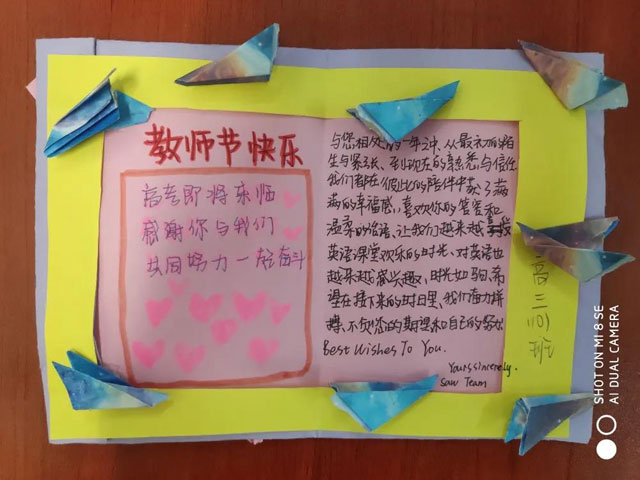 教师节快乐
高考即将来临
感谢你与我们
共同努力一起奋斗
与您相处的一年中，从最初的陌
生与紧张、到现在的熟悉与信任
我们都在彼此的陪伴中多了满
满的幸福感，喜欢你的笑容和
温柔的话语，让我们越来越
英语课堂欢乐的时光，对英语也
越来越感兴趣，时光如驹，希
望在接下来的时日里，我们奋力拼
搏、不负您的期望和自己的努力
Best Wishes To You.
Yours sincerely.
Saw Team
高三
班
SHOT ON MI 8 SE
AI DUAL CAMERA